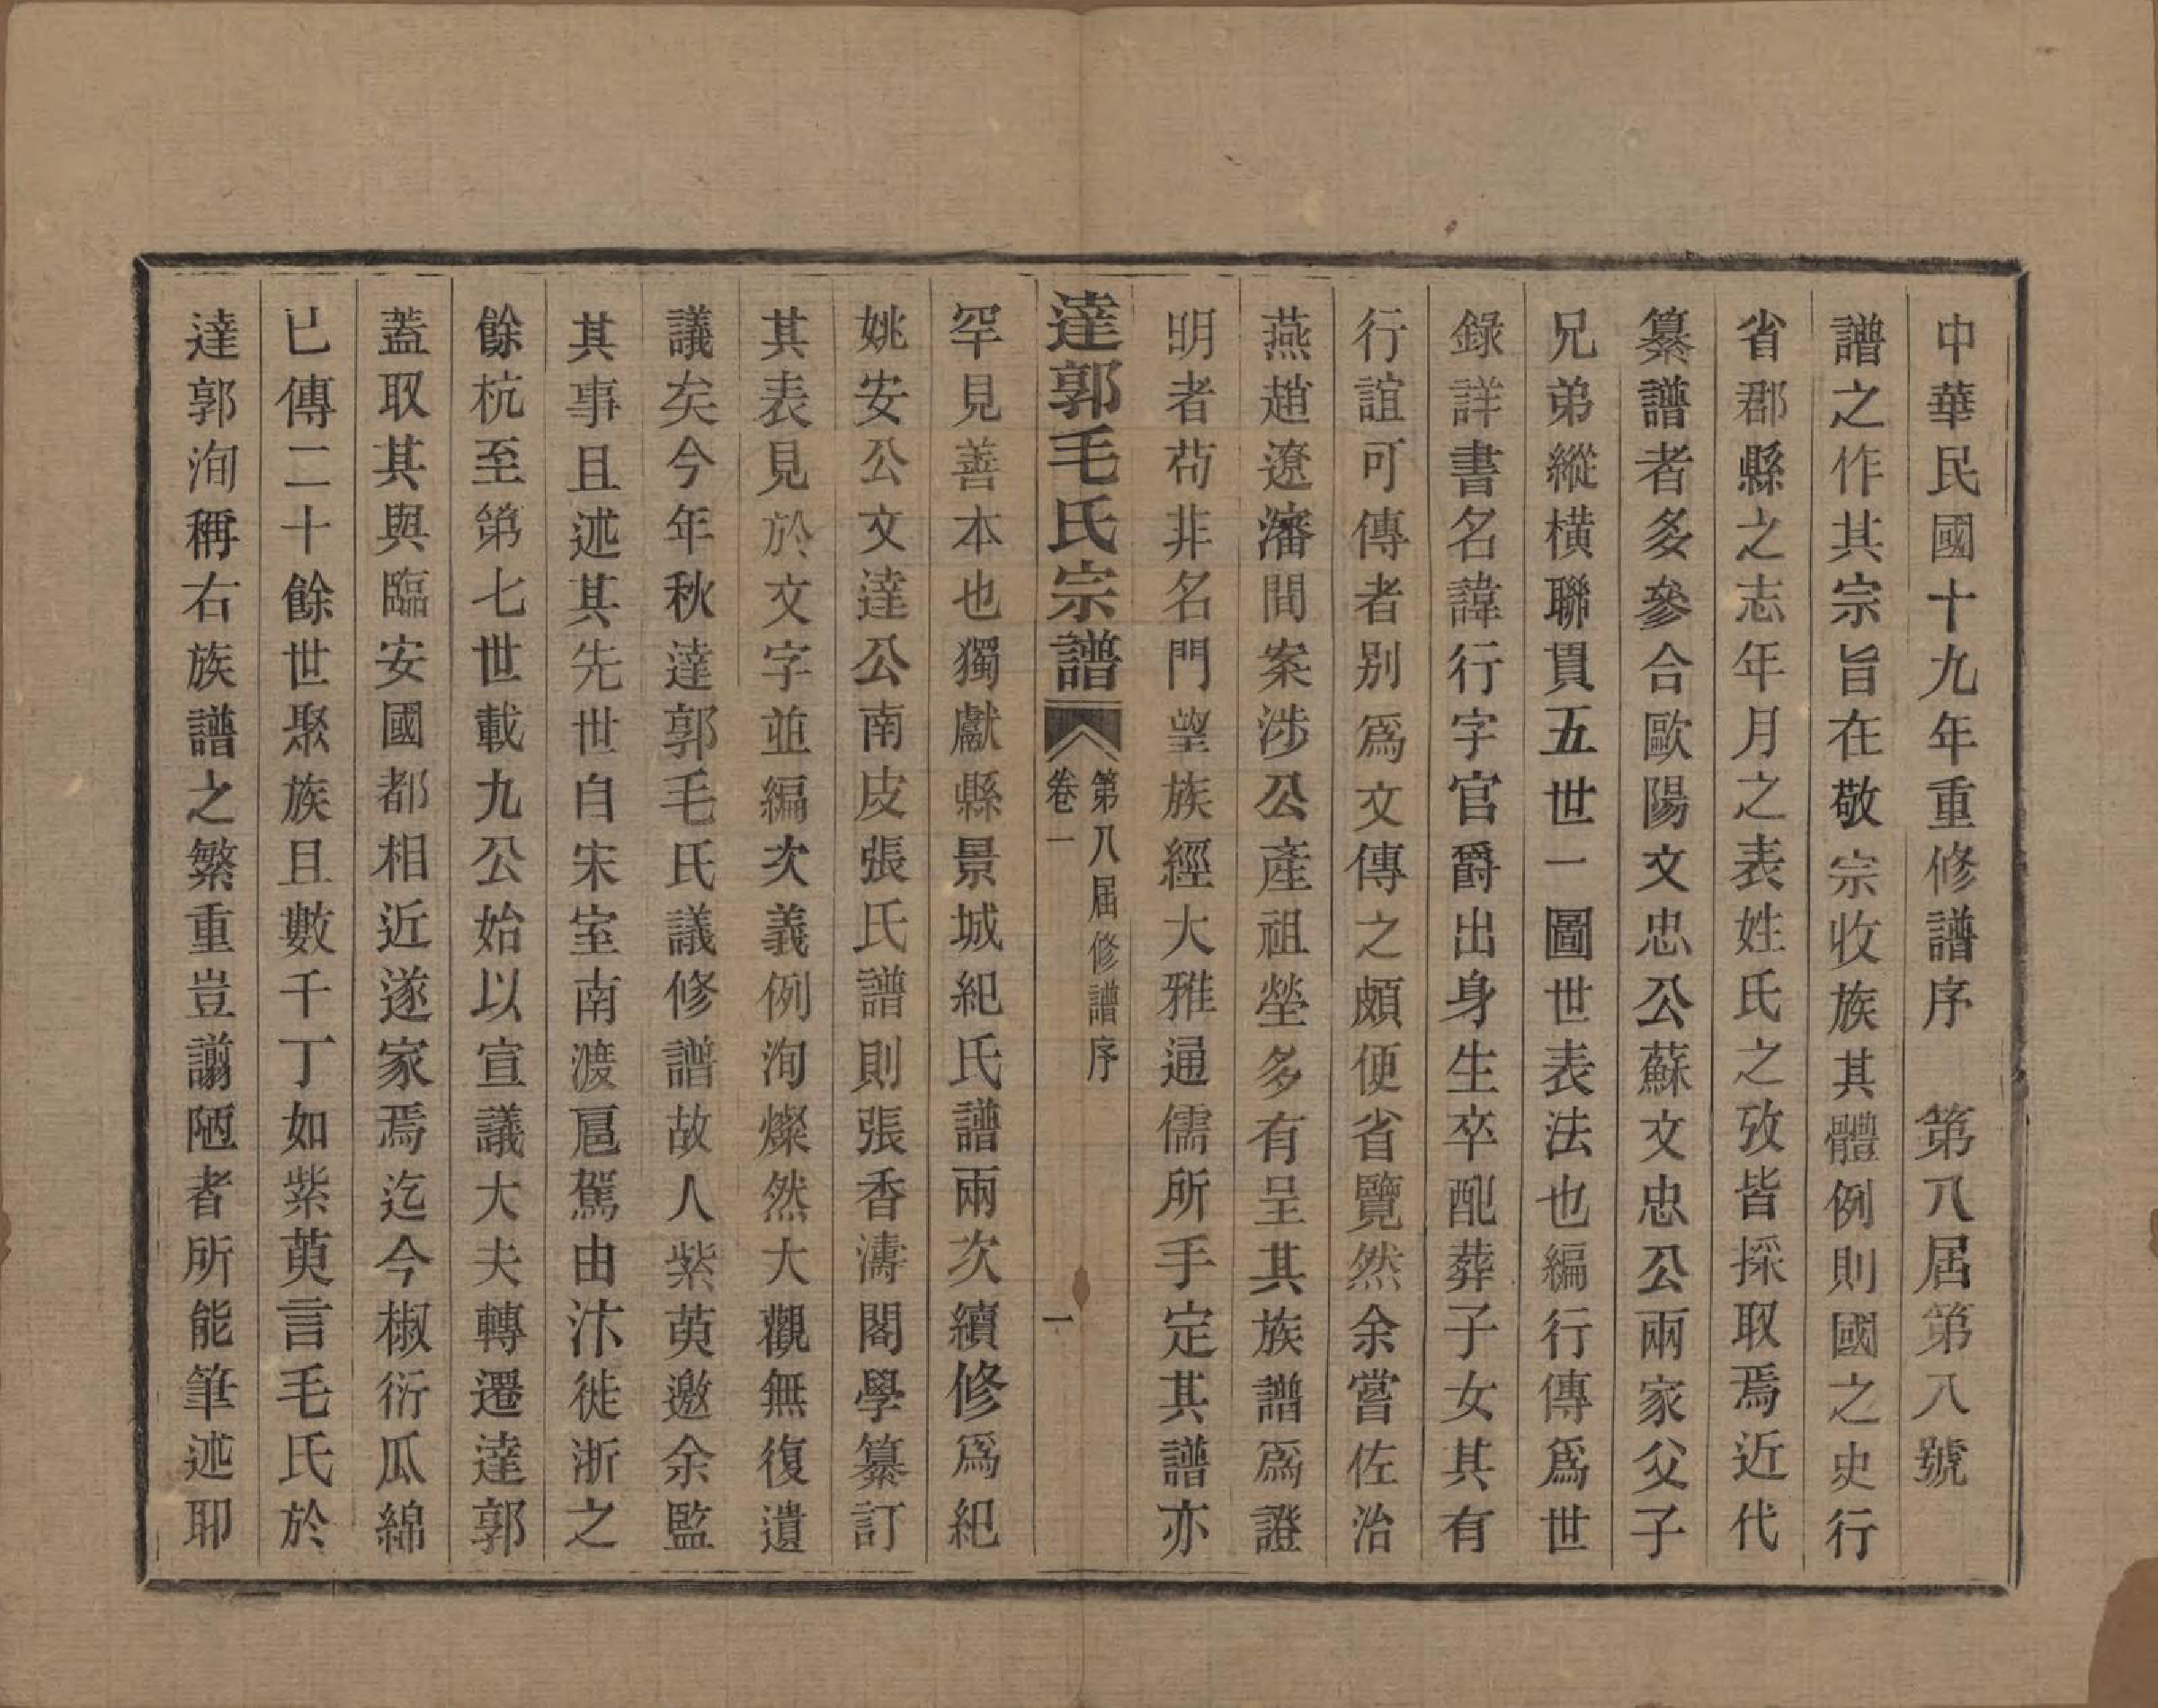 中華民國十九年重修譜序　第八屆第八號
譜之作其宗旨在敬宗收族其體例則國之史行
省郡縣之志年月之表姓氏之攷皆採取焉近代
纂譜者多參合歐陽文忠公蘇文忠公兩家父子
兄弟縱橫聯貫五世一圖世表法也編行傳為世
錄詳書名諱行字官爵出身生卒配葬子女其有
行誼可傳者別為文傳之頗便省覽然余嘗佐治
燕趙遼瀋間案涉公產祖塋多有呈其族譜為證
明者茍非名門望族經大雅通儒所手定其譜亦
達郭毛氏宗譜
第八屆修譜序
卷一
一
罕見善本也獨獻縣景城紀氏譜兩次續修為紀
姚安公文達公南皮張氏譜則張香濤閣學纂訂
其表見於文字並編次義例洵燦然大觀無復遺
議矣今年秋達郭毛氏議修譜故人紫萸邀余監
其事且述其先世自宋室南渡扈駕由汴徙浙之
餘杭至第七世載九公始以宣議大夫轉遷達郭
蓋取其與臨安國都相近遂家焉迄今椒衍瓜綿
已傳二十餘世聚族且數千丁如紫萸言毛氏於
達郭洵稱右族譜之繁重豈譾陋者所能筆述耶